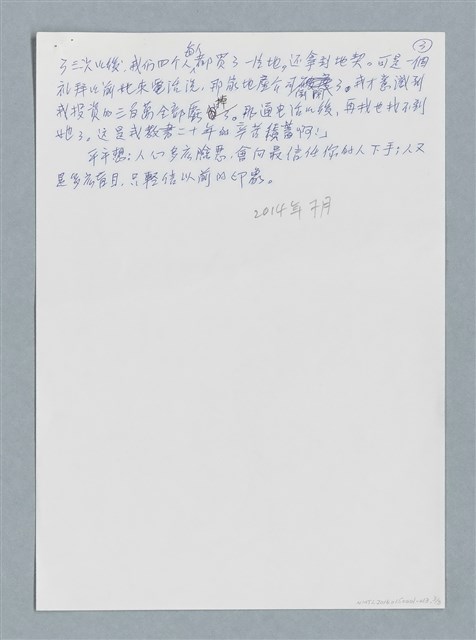 ③
了三次以後，我们四个人每人都買了一些地。还拿到地契。可是一個
礼拜以前她来電话说，那家地產公司倒閉了。我才意識到
我投资的三百萬全部虧掉了。那通电话以後，再找也找不到
她了。这是我教書二十年的辛苦積蓄啊！」
平平想：人心多広險惡，會向最信任你的人下手；人又
是多広盲目，只輕信以前的印象。
2014年7月